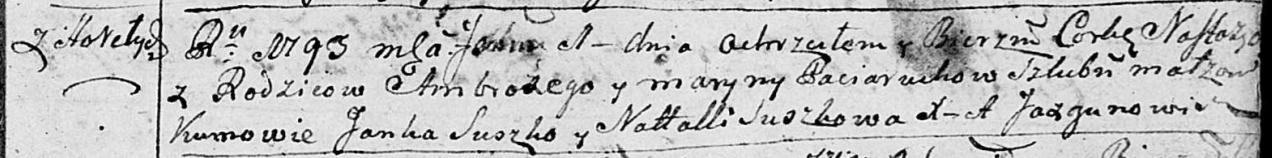 z Horełych Rᵘ 1793 mca Januar A dnia Ochrzciłem y Bierzm Corkę Nastazo
z Rodzicow Ambrożego y maryny Paciaruchow Szlubn małzon
Kumowie Janka Suszko y Nattalli Suszkowa A-A Jazgunowicz